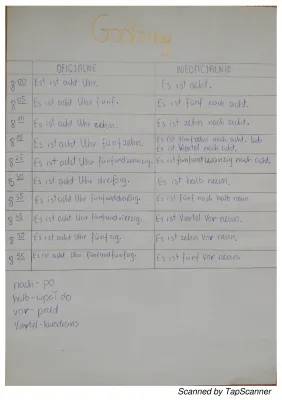 Godziny
OFICJALNIE NIEOFICJALNIE
8 00 Es ist acht Uhr. Es ist acht.
8 05 Es ist acht Uhr fünf. Es ist fünf nach acht.
8 10 Es ist acht Uhr zehn. Es ist zehn nach acht.
8 15 Es ist acht Uhr fünfzehn. Es ist fünfzehn nach acht. lub
Es ist Viertel nach acht.
Es ist acht Uhr fünfundzwanzig. Es ist fünfundzwanzig nach acht.
8 30 Es ist acht Uhr dreißig. Es ist halb neun.
8 35 Es ist acht Uhr fünfunddreißig. Es ist fünf nach halb neun
8 45 Es ist acht Uhr fünfundvierzig. Es ist Viertel vor neun.
8 50 Es ist acht Uhr fünfzig. Es ist zehn vor neun.
8 55 Es ist acht Uhr fünfundfünfzig. Es ist fünf vor neun
nach - po
halb - wpół do
vor - przed
Viertel - kwadrans
Scanned by TapScanner